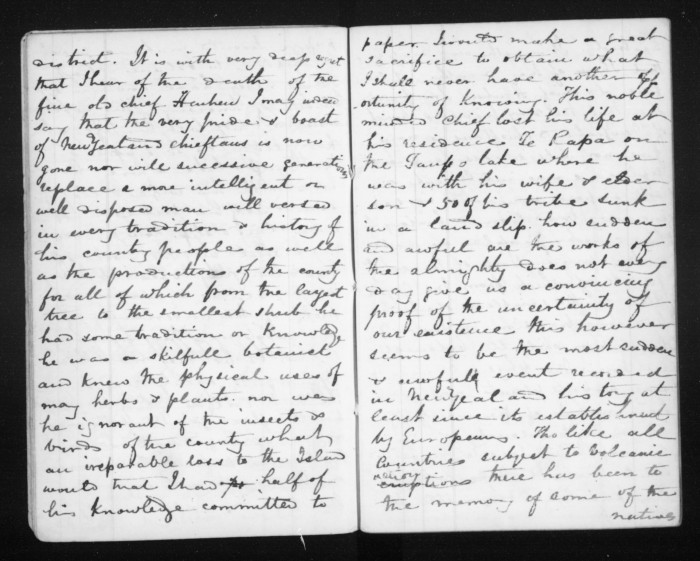 district. It is with very deep regret
that I hear of the death of the
fine old chief Heuheu I may indeed
say that the very pride & boast
of New Zealand chieftans is now
gone nor will sucessive generations
replace a more intelligent or
well disposed man well versed
in every tradition & history of
his country people as well
as the productions of the county
for all of which from the largest
tree to the smallest shrub he
had some tradition or Knowledge
he was a skilfull botanist
and knew the physical uses of
many herbs & plants. nor was
he ignorant of the insects &
birds of the county what
an irepairable loss to the Island
would that I had half of
his Knowledge committed to
paper I would make a great
sacrifice to obtain what
I shall never have another opp
ortunity of Knowing. This noble
minded chief lost his life at
his residence Te Rapa on
the Taupo lake where he
was with his wife & elder
son & 50 of his tribe sunk
in a land slip. how sudden
and awful are the works of
the almighty does not every
day give us a convincing
proof of the uncertainty of
our existence this however
seems to be the most sudden
& awfull event recorded
in New Zealand history at
least since its establishment
by Europeans. Tho like all
countries subject to volcanic
eruptions there has been to
the memory of some of the
natives